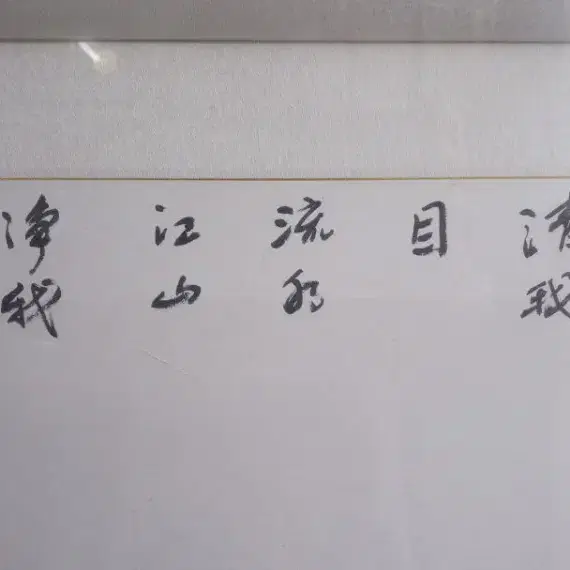 清我
目
流
江山
净我